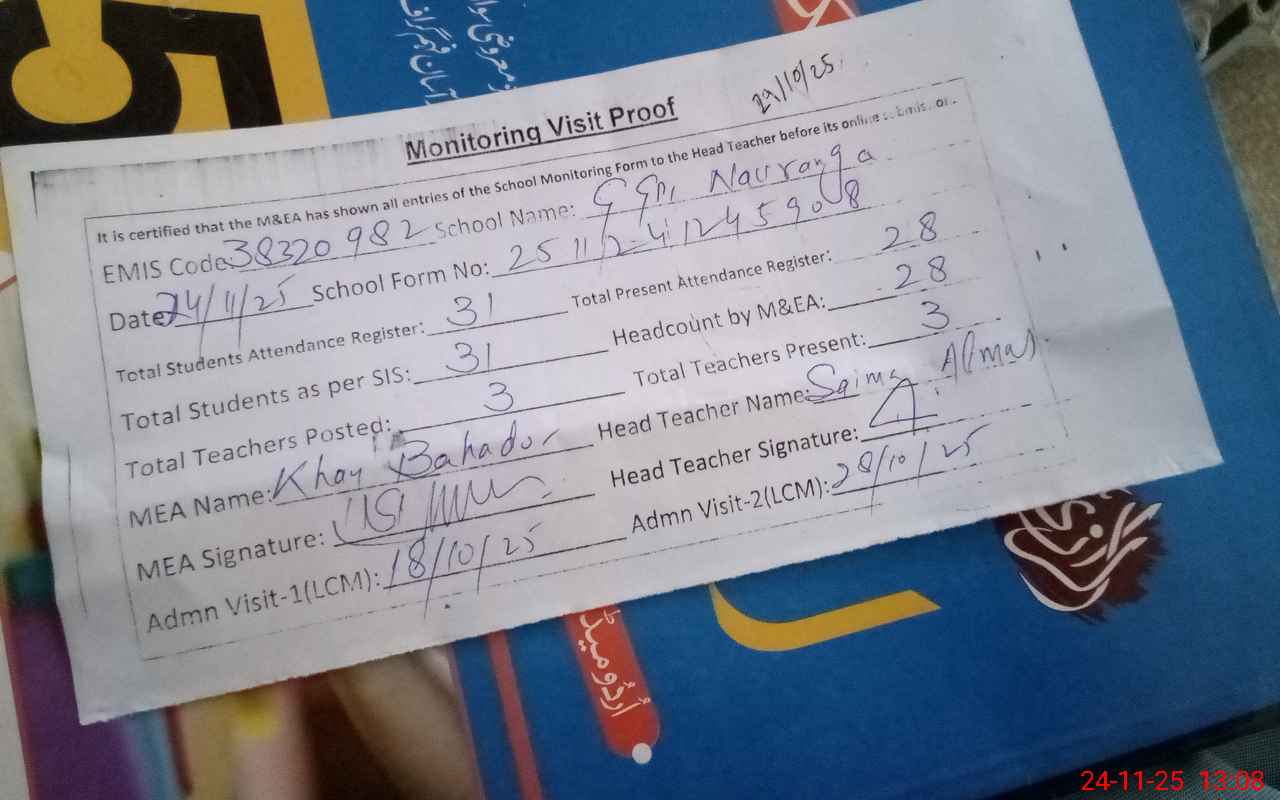 5
معروضی سوا
آسان فہم گراف
29/10/25
Monitoring Visit Proof
It is certified that the M&EA has shown all entries of the School Monitoring Form to the Head Teacher before its online
EMIS Code: 38320982 School Name: GGPS Nauranga
Date 24/11/25 School Form No: 2511241245908
Total Students Attendance Register: 31 Total Present Attendance Register: 28
Total Students as per SIS: 31 Headcount by M&EA: 28
Total Teachers Posted: 3 Total Teachers Present: 3
MEA Name: Bahadur Head Teacher Name: Saima Almas
MEA Signature: Head Teacher Signature:
Admn Visit-1(LCM): 18/10/25 Admn Visit-2(LCM): 28/10/25
اُردو میڈ
24-11-25 13:08